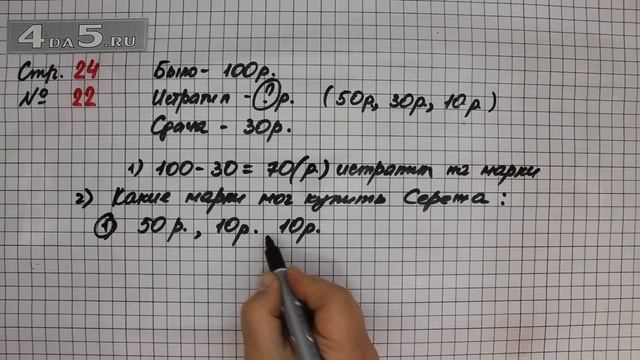 4DA5.RU
Стр. 24 Было - 100р.
№ 22 Истратил - ? р. (50р, 30р, 10р)
Сдача - 30р.
1) 100 - 30 = 70(р.) истратил на марки
2) Какие марки мог купить Серёжа :
① 50 р., 10р. 10р.